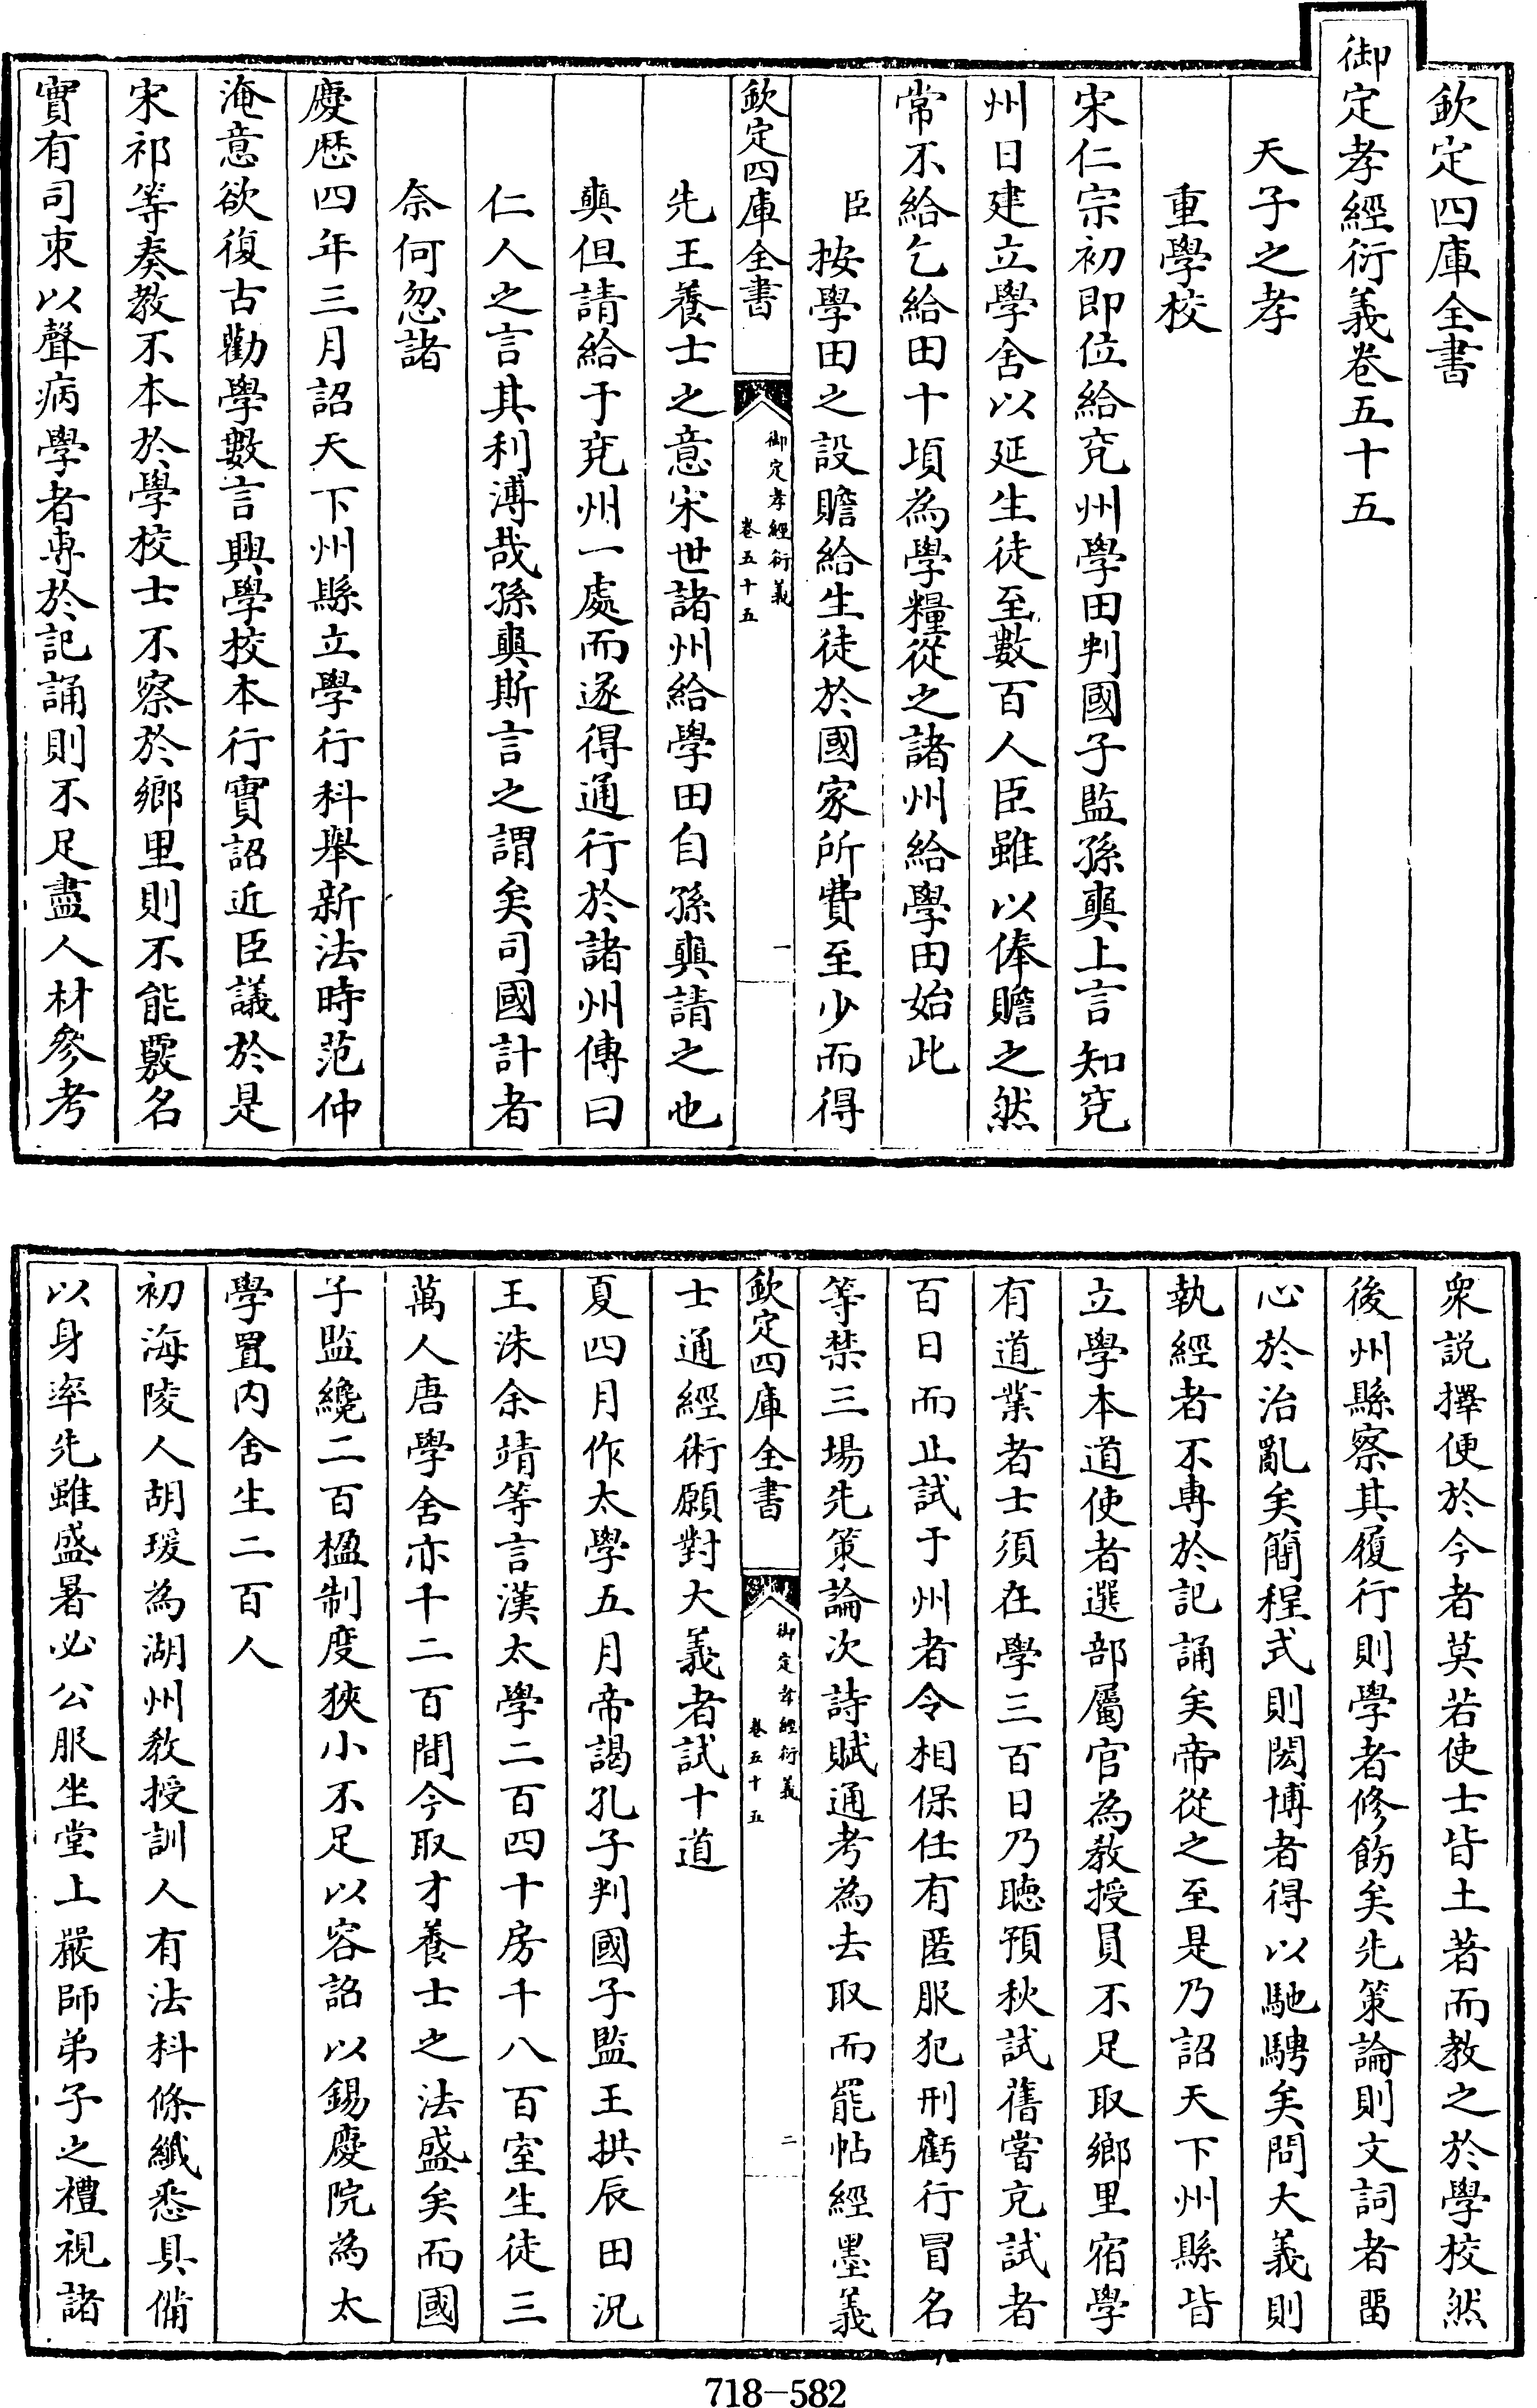 欽定四庫全書
御定孝經衍義卷五十五
天子之孝
重學校
宋仁宗初即位給兗州學田判國子監孫奭上言知兗
州日建立學舍以延生徒至數百人臣雖以俸贍之然
常不給乞給田十頃為學糧從之諸州給學田始此
臣按學田之設贍給生徒於國家所費至少而得
欽定四庫全書
御定孝經衍義
卷五十五
一
先王養士之意宋世諸州給學田自孫奭請之也
奭但請給于兗州一處而遂得通行於諸州傳曰
仁人之言其利溥哉孫奭斯言之謂矣司國計者
奈何忽諸
慶歷四年三月詔天下州縣立學行科舉新法時范仲
淹意欲復古勸學數言興學校本行實詔近臣議於是
宋祁等奏教不本於學校士不察於鄉里則不能覈名
實有司束以聲病學者專於記誦則不足盡人材參考
衆説擇便於今者莫若使士皆土著而教之於學校然
後州縣察其履行則學者修飭矣先策論則文詞者畱
心於治亂矣簡程式則閎博者得以馳騁矣問大義則
執經者不專於記誦矣帝從之至是乃詔天下州縣皆
立學本道使者選部屬官為教授員不足取鄉里宿學
有道業者士須在學三百日乃聽預秋試舊嘗充試者
百日而止試于州者令相保任有匿服犯刑虧行冒名
等禁三場先策論次詩賦通考為去取而罷帖經墨義
欽定四庫全書
御定孝經衍義
卷五十五
二
士通經術願對大義者試十道
夏四月作太學五月帝謁孔子判國子監王拱辰田況
王洙余靖等言漢太學二百四十房千八百室生徒三
萬人唐學舍亦千二百間今取才養士之法盛矣而國
子監纔二百楹制度狹小不足以容詔以錫慶院為太
學置内舍生二百人
初海陵人胡瑗為湖州教授訓人有法科條纖悉具備
以身率先雖盛暑必公服坐堂上嚴師弟子之禮視諸
718-582